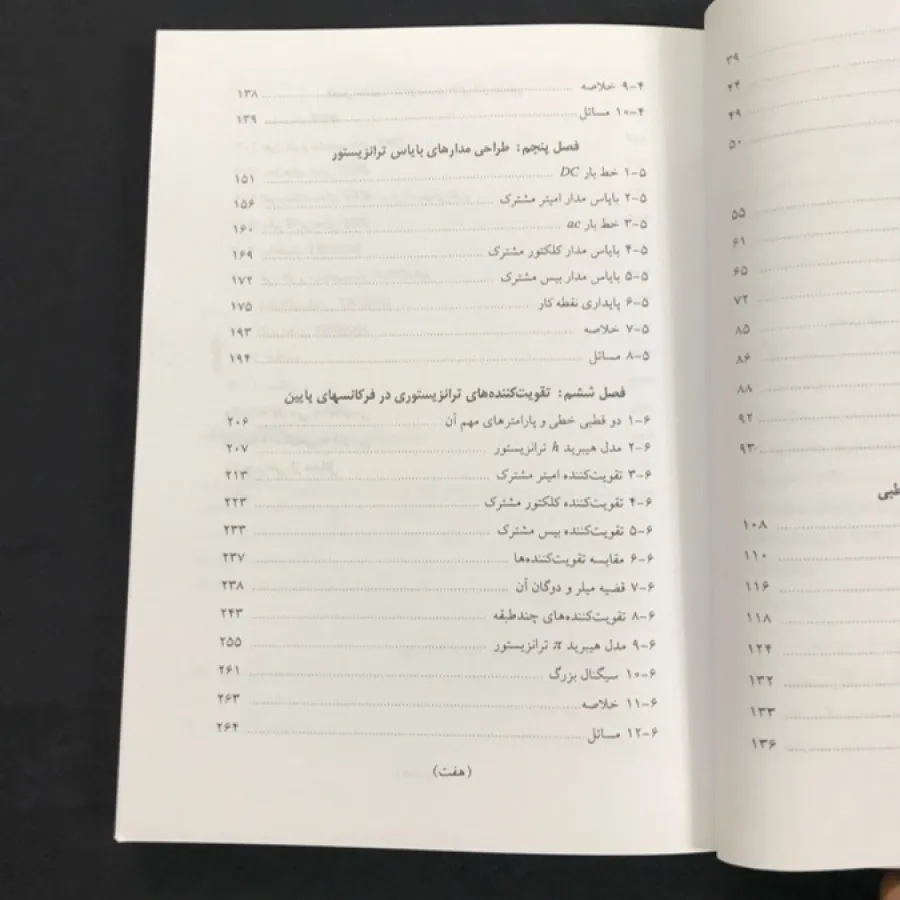 ۴-۹ خلاصه ........ ۱۳۸
۴-۱۰ مسائل ........ ۱۳۹
فصل پنجم: طراحی مدارهای بایاس ترانزیستور
۵-۱ خط بار DC ........ ۱۵۱
۵-۲ بایاس مدار امیتر مشترک ........ ۱۵۶
۵-۳ خط بار ac ........ ۱۶۰
۵-۴ بایاس مدار کلکتور مشترک ........ ۱۶۹
۵-۵ بایاس مدار بیس مشترک ........ ۱۷۲
۵-۶ پایداری نقطه کار ........ ۱۷۵
۵-۷ خلاصه ........ ۱۹۳
۵-۸ مسائل ........ ۱۹۴
فصل ششم: تقویت‌کننده‌های ترانزیستوری در فرکانسهای پایین
۶-۱ دو قطبی خطی و پارامترهای مهم آن ........ ۲۰۶
۶-۲ مدل هیبرید h ترانزیستور ........ ۲۰۷
۶-۳ تقویت‌کننده امیتر مشترک ........ ۲۱۳
۶-۴ تقویت‌کننده کلکتور مشترک ........ ۲۲۳
۶-۵ تقویت‌کننده بیس مشترک ........ ۲۳۳
۶-۶ مقایسه تقویت‌کننده‌ها ........ ۲۳۷
۶-۷ قضیه میلر و دوگان آن ........ ۲۳۸
۶-۸ تقویت‌کننده‌های چندطبقه ........ ۲۴۳
۶-۹ مدل هیبرید π ترانزیستور ........ ۲۵۵
۶-۱۰ سیگنال بزرگ ........ ۲۶۱
۶-۱۱ خلاصه ........ ۲۶۳
۶-۱۲ مسائل ........ ۲۶۴
(هفت)
۳۹
۴۴
۴۹
۵۰
۵۵
۶۱
۶۵
۷۲
۸۵
۸۶
۸۸
۹۲
۹۳
۱۰۸
۱۱۰
۱۱۶
۱۱۸
۱۲۴
۱۳۲
۱۳۳
۱۳۶